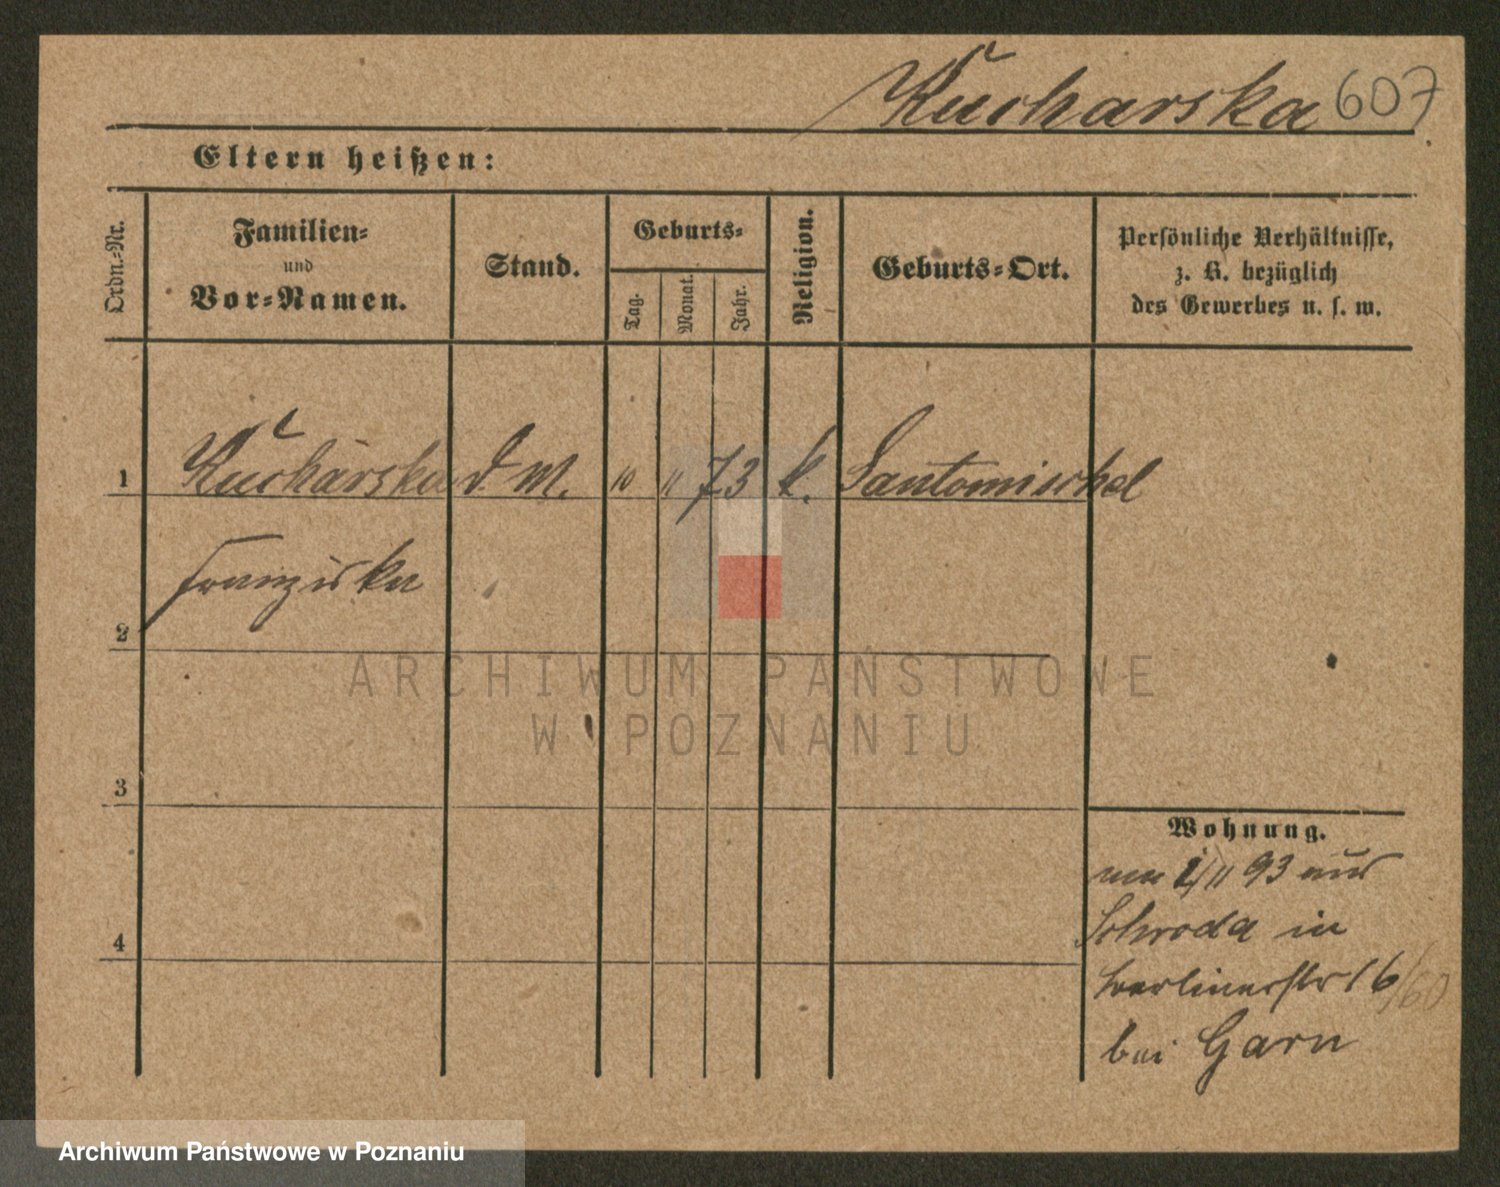 Kucharska 607
Eltern heißen:
Ordn.-Nr.
Familien-
und
Vor-Namen.
Stand.
Geburts-
Tag.
Monat.
Jahr.
Religion.
Geburts-Ort.
Persönliche Verhältnisse,
z. B. bezüglich
des Gewerbes u. s. w.
1 Kucharska d. M. 10 11 73 k. Santomischel
Franziska
2
3
4
Wohnung.
/11 93 aus
Schroda in
Berlinerstr 16/60
bei Garn
ARCHIWUM PAŃSTWOWE
W POZNANIU
Archiwum Państwowe w Poznaniu